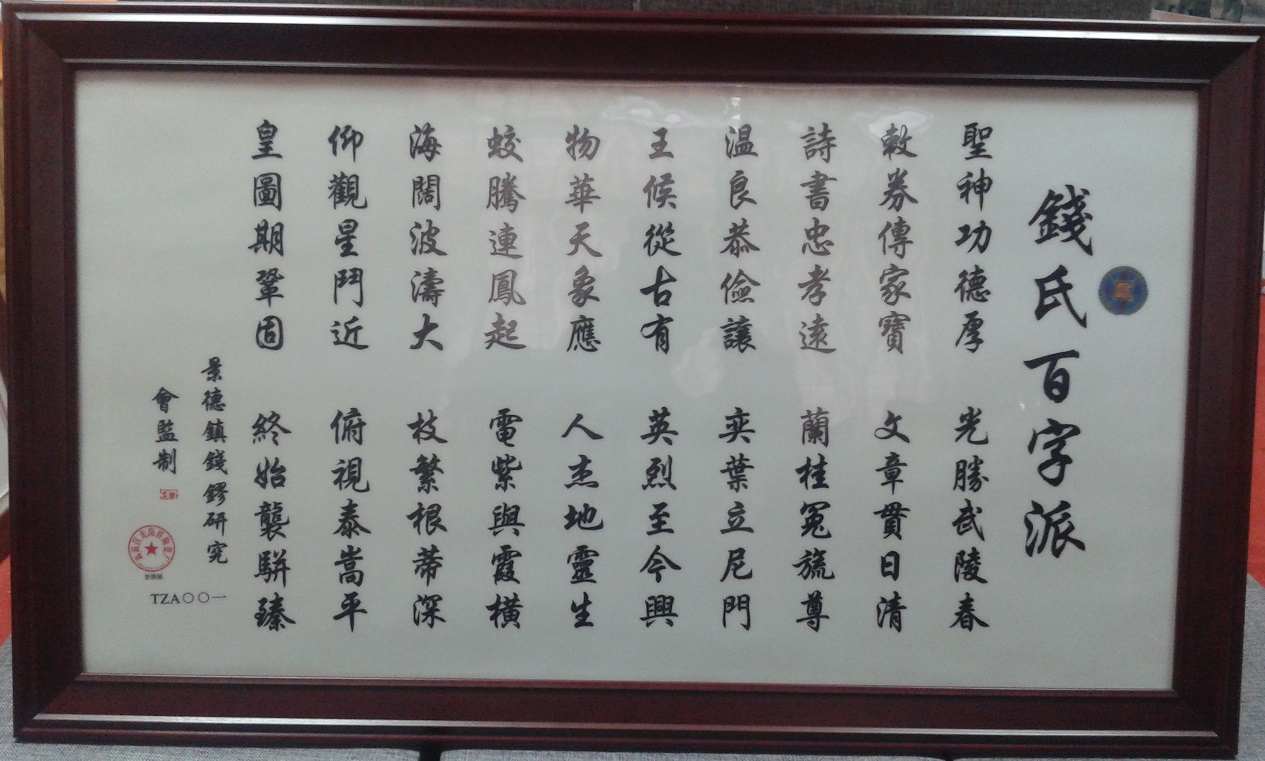 錢氏百字派
聖神功德厚 光勝武陵春
敕券傳家寶 文章貫日清
詩書忠孝遠 蘭桂冕旒尊
温良恭儉讓 奕葉立尼門
王候從古有 英烈至今興
物華天象應 人杰地靈生
蛟騰連鳳起 電紫與霞橫
海闊波濤大 枝繁根蒂深
仰觀星鬥近 俯視泰嵩平
皇圖期鞏固 終始襲駢臻
景德鎮錢鏐研究
會監制
TZA〇〇一